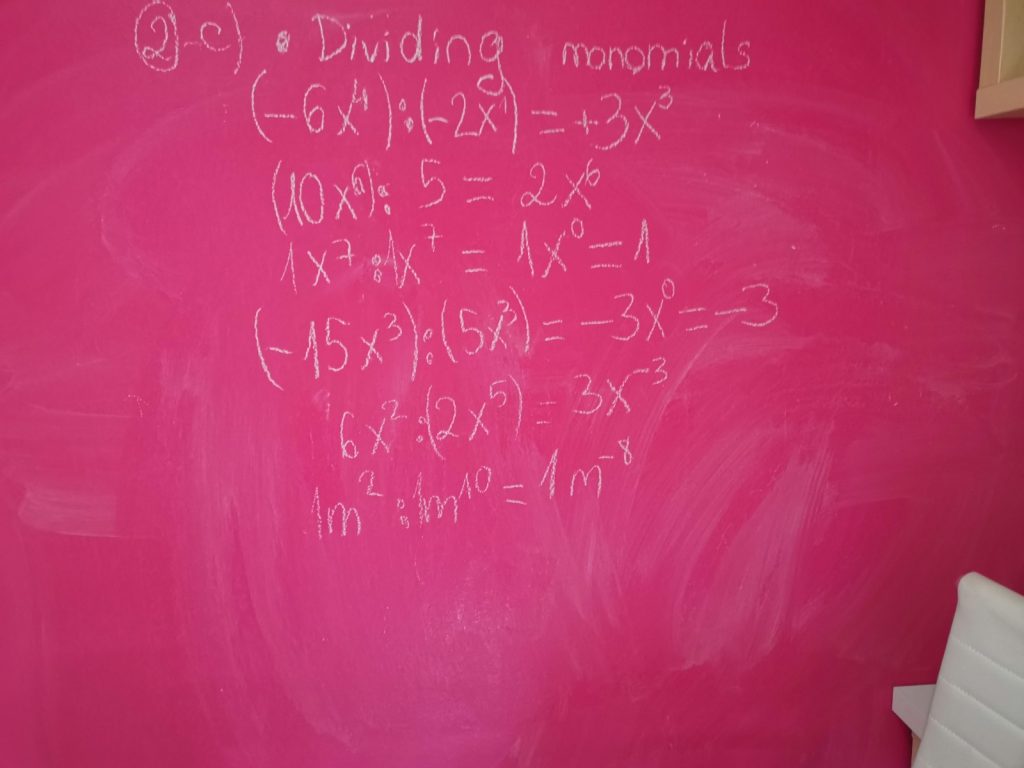 ②-c) • Dividing monomials
(-6x⁴):(-2x¹) = +3x³
(10x⁶): 5 = 2x⁶
1x⁷:1x⁷ = 1x⁰ = 1
(-15x³):(5x³) = -3x⁰ = -3
6x²:(2x⁵) = 3x⁻³
1m²:1m¹⁰ = 1m⁻⁸